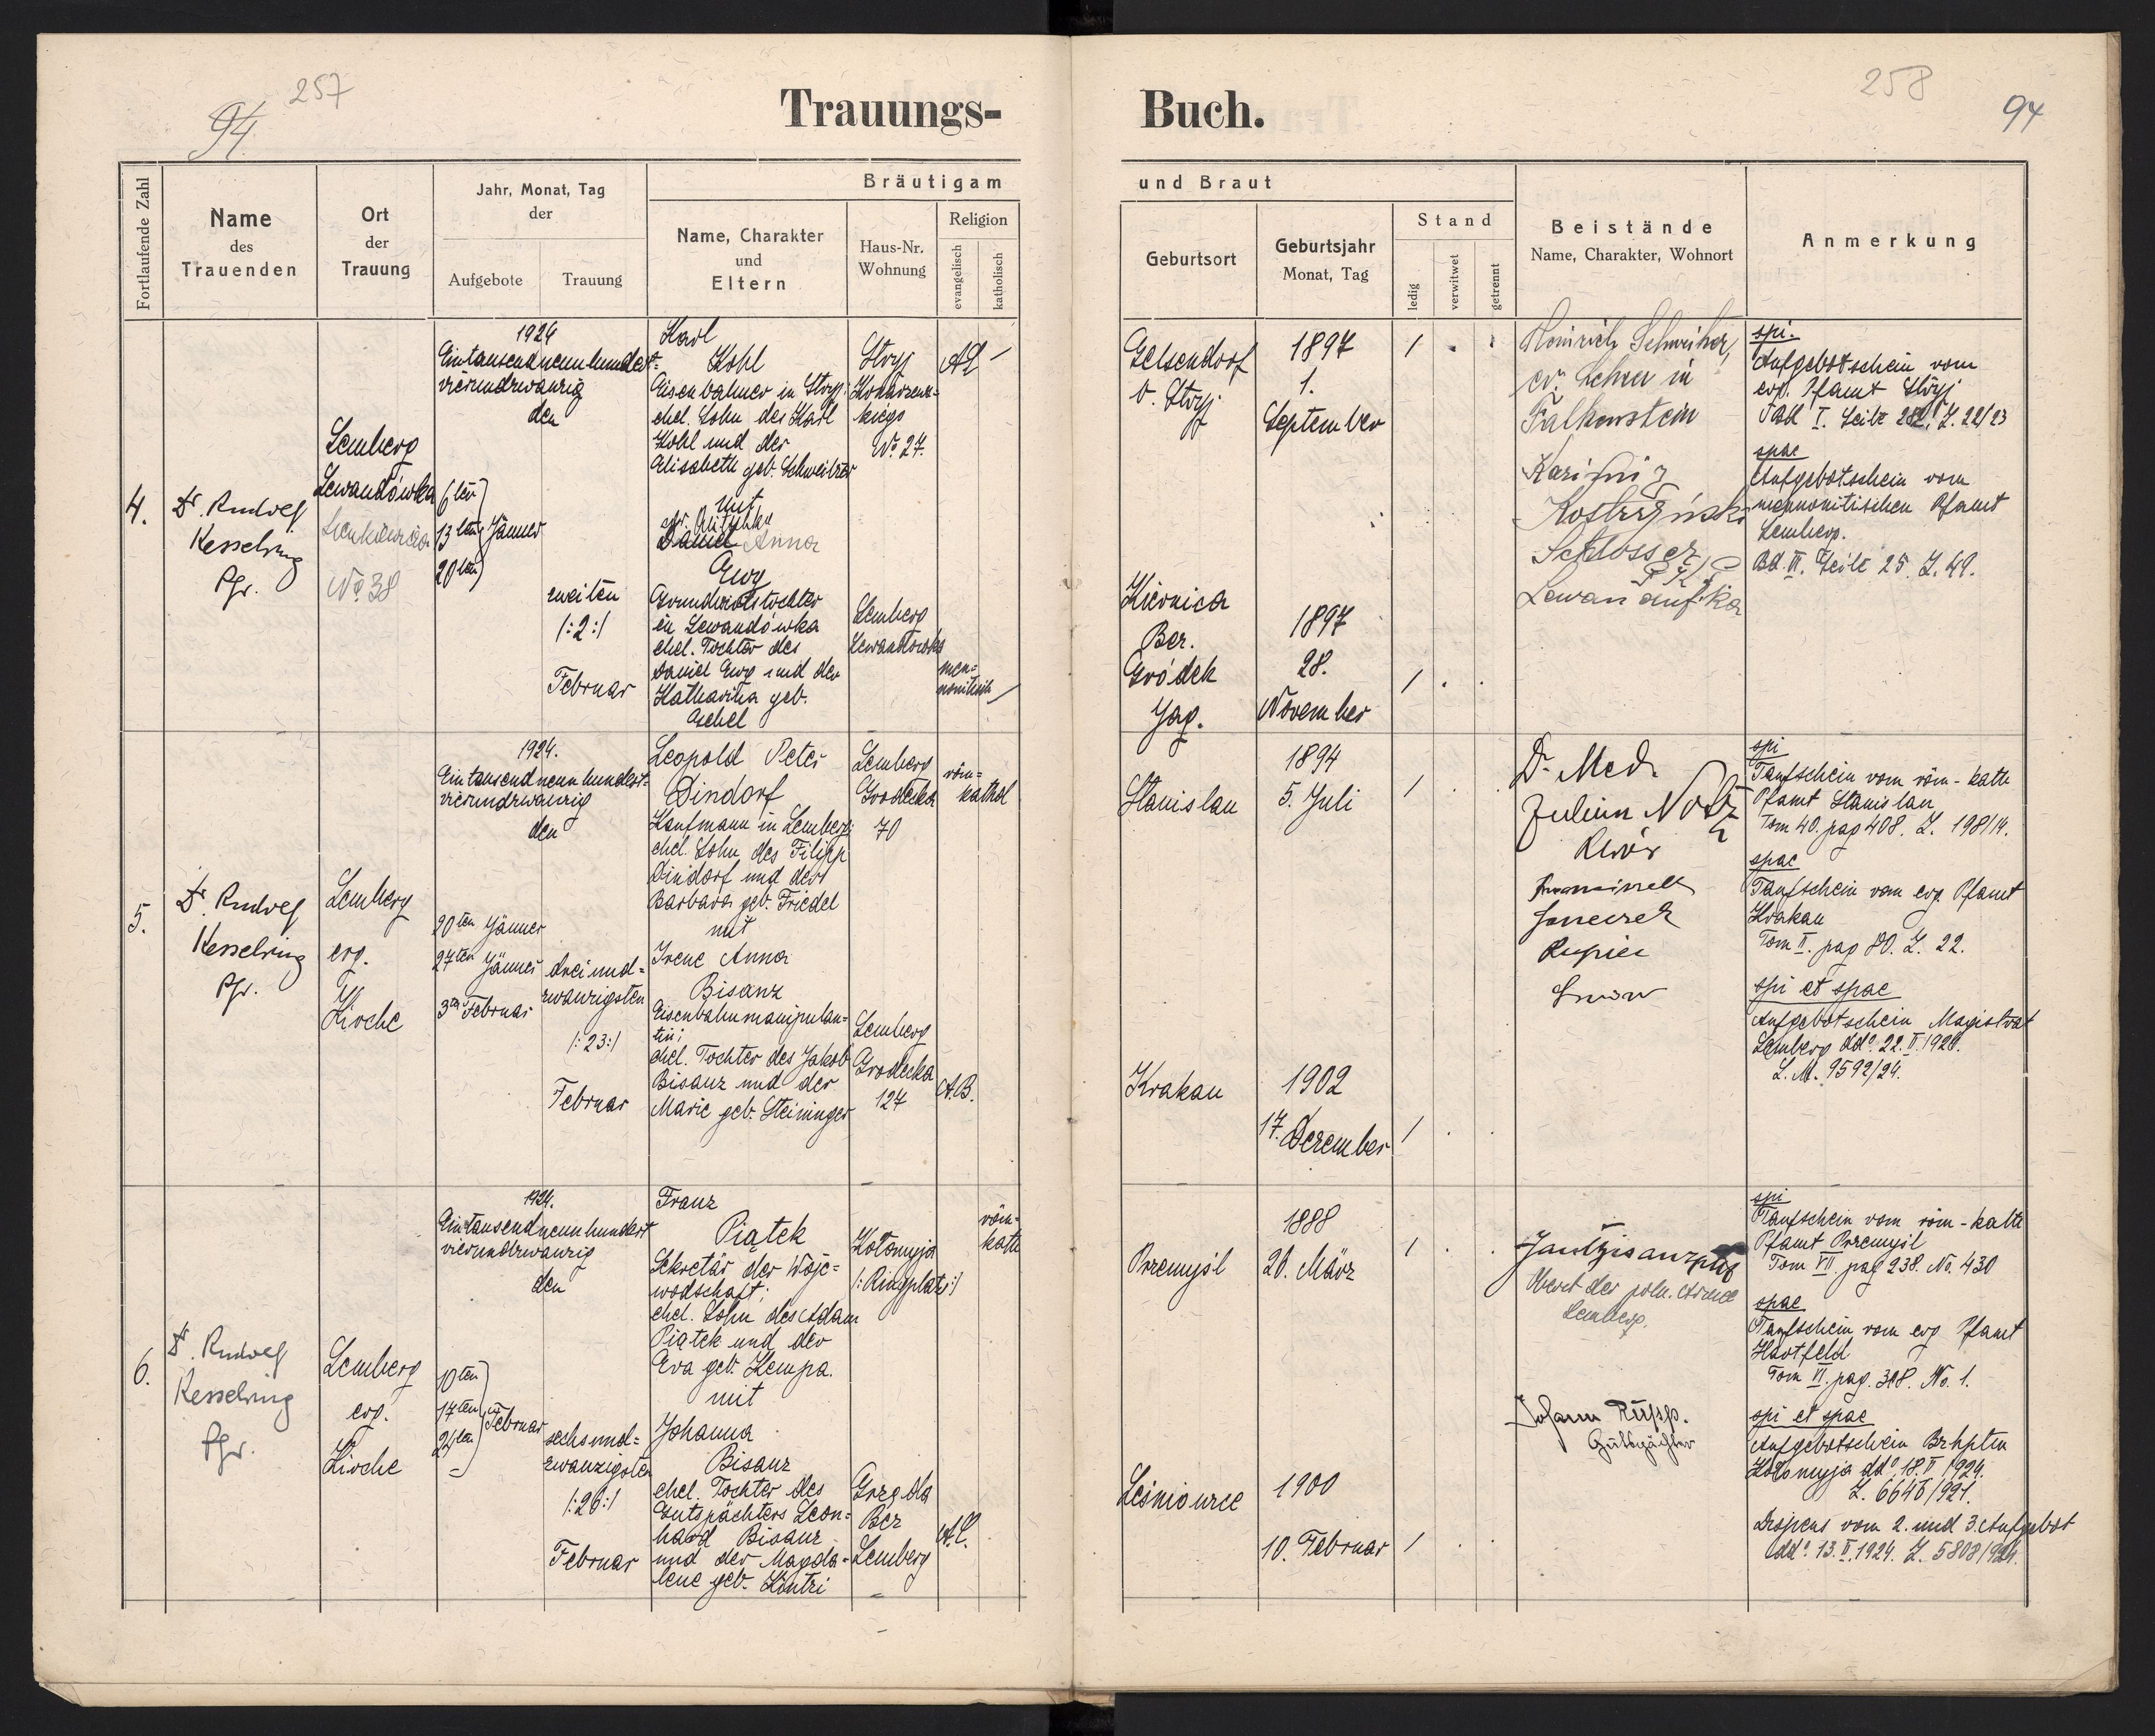 257
94.
Trauungs-
Buch.
258
94
Fortlaufende Zahl
Name
des
Trauenden
Ort
der
Trauung
Jahr, Monat, Tag
der
Aufgebote
Trauung
Bräutigam
Name, Charakter
und
Eltern
Haus-Nr.
Wohnung
Religion
evangelisch
katholisch
und Braut
Geburtsort
Geburtsjahr
Monat, Tag
Stand
ledig
verwitwet
getrennt
Beistände
Name, Charakter, Wohnort
Anmerkung
4.
Dr. Rudolf
Kesselring
Pfr.
Lemberg
Lewandówka
No 38
1924
Eintausendneunhundert-
vierundzwanzig
den
6ten
13ten Jänner
20ten
zweiten
/:2:/
Februar
Karl
Kohl
Eisenbahner in Stryj;
ehel. Sohn des Karl
Kohl und der
Elisabeth geb. Schweitzer
mit
Anna
Ewy
Grundwirtstochter
in Lewandówka
ehel. Tochter des
Daniel Ewy und der
Katharina geb.
Stryj
No. 27.
Lemberg
Lewandówka
men-
nonitisch
Gelsendorf
b. Stryj
1897
1.
September
/
Bez.
Gródek
Jag.
1897
28.
November
/
Heinrich Schweitzer,
ev. Lehrer in
Falkenstein
Schlosser
spi.
Aufgebotschein vom
evg. Pfamt Stryj
I. Seite 282, Z. 22/23
spae
Aufgebotschein vom
mennonitischen Pfamt
Lemberg.
Bd. II. Seite 25. Z. 49.
5.
Dr. Rudolf
Kesselring
Pfr.
Lemberg
evg.
Kirche
1924.
Eintausendneunhundert-
vierundzwanzig
den
20ten Jänner
27ten Jänner
3ten Februar
dreiund-
zwanzigsten
/:23:/
Februar
Leopold Peter
Dindorf
Kaufmann in Lemberg;
ehel. Sohn des Filipp
Dindorf und der
Barbara geb. Friedel
mit
Irene Anna
Bisanz
Eisenbahnmanipulan-
tin;
ehel. Tochter des Jakob
Bisanz und der
Marie geb. Steininger
Lemberg
Grodecka
70
röm-
kathol
Lemberg
Grodecka
127
A.B.
Stanislau
1894
5. Juli
/
Krakau
1902
17. Dezember
/
Dr. Med.
Lwów
spi
Taufschein vom röm-kath
Pfamt Stanislau
Tom 40. pag 408. Z. 198/14.
spae
Taufschein vom evg. Pfamt
Krakau
Tom II. pag 80. Z. 22.
spi et spae
Aufgebotschein Magistrat
Lemberg ddo. 22. II. 1924.
L. M. 9592/24.
6.
Dr. Rudolf
Kesselring
Pfr.
Lemberg
evg.
Kirche
1924.
Eintausendneunhundert
vierundzwanzig
den
10ten
17ten Februar
24ten
sechsund-
zwanzigsten
/:26:/
Februar
Franz
Piątek
Sekretär der Woje-
wodschaft;
ehel. Sohn des Adam
Piątek und der
Eva geb. Kempa.
mit
Johanna
Bisanz
ehel. Tochter des
Gutspächters Leon-
hard Bisanz
und der Magda-
lene geb. Kintzi
Kołomyja
/:Ringplatz:/
röm-
kath
Grzęda
Bez
Lemberg
Przemyśl
1888
20. März
/
1900
10. Februar
/
Oberst der poln. Armee
Lemberg.
Johann Rupp.
Gutspächter
spi
Taufschein vom röm-kath
Pfamt Przemyśl
Tom VII. pag 238. No. 430
spae
Taufschein vom evg Pfamt
Hartfeld
Tom VI. pag. 308. No. 1.
spi et spae
Aufgebotschein Bzhptm
Kołomyja ddo 18. II 1924.
Z. 6646/924.
Dispens vom 2. und 3. Aufgebot
ddo. 13. II. 1924. Z. 5808/924.